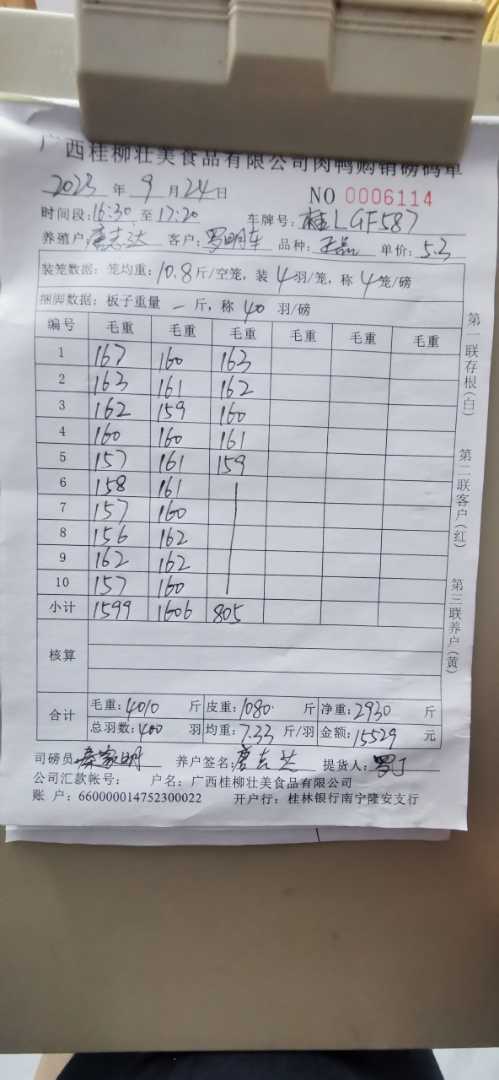 广西桂柳壮美食品有限公司肉鸭购销磅码单
2023 年 9 月 24 日 NO 0006114
时间段:16:30 至 17:20 车牌号:桂LGF587
养殖户:唐志达 客户:罗明车 品种: 单价:5.3
装笼数据:笼均重:10.8斤/空笼,装 4 羽/笼,称 4 笼/磅
捆脚数据:板子重量 一 斤,称 40 羽/磅
编号 毛重 毛重 毛重 毛重 毛重 毛重
1 167 160 163
2 163 161 162
3 162 159 160
4 160 160 161
5 157 161 159
6 158 161
7 157 160
8 156 162
9 162 162
10 157 160
小计 1599 1606 805
核算
合计 毛重:4010 斤 皮重:1080 斤 净重:2930 斤
总羽数:400 羽 均重:7.33 斤/羽 金额:15529 元
司磅员 秦家明 养户签名:唐志达 提货人:
公司汇款帐号: 户名:广西桂柳壮美食品有限公司
账 户:660000014752300022 开户行:桂林银行南宁隆安支行
第一联存根(白)
第二联客户(红)
第三联养户(黄)